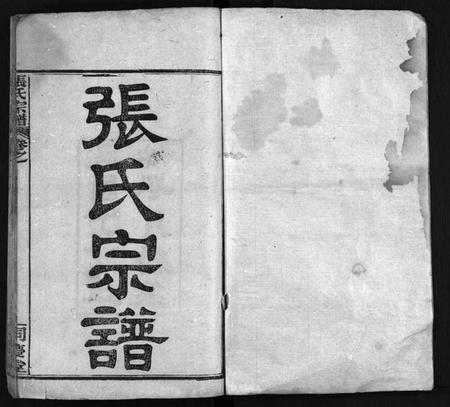 張氏宗譜
張氏宗譜 卷之